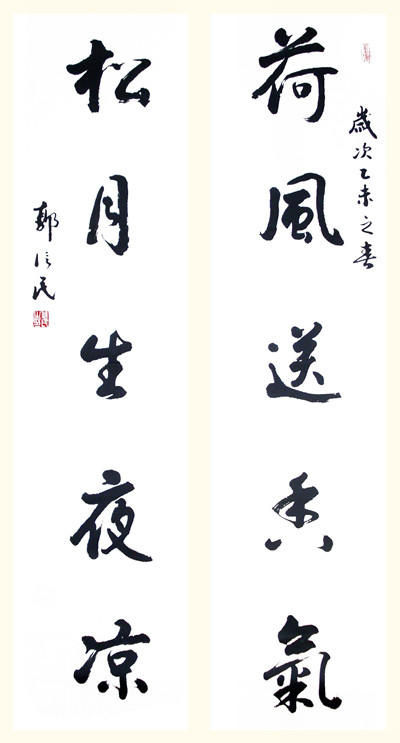 歲次乙未之春
荷風送香氣
松月生夜凉
郭信民